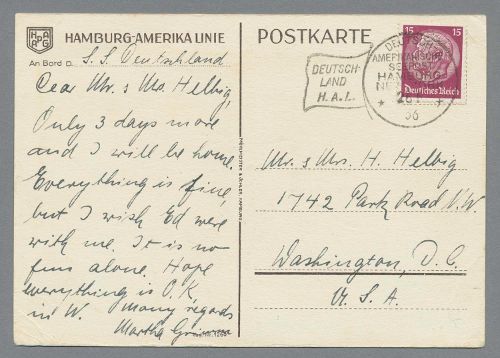 HAPAG
HAMBURG-AMERIKA LINIE
An Bord D. S.S. Deutschland
Dear Mr. & Mrs. Helbig,
Only 3 days more
and I will be home.
Everything is fine,
but I wish Ed were
with me. It is no
fun alone. Hope
everything is O.K.
in W. Many regards
Martha
POSTKARTE
DEUTSCH-
LAND
H.A.L.
DEUTSCH
AMERIKANISCHE
SEEPOST
HAMBURG
NEW YORK
36
15 15
Deutsches Reich
Mr. & Mrs. H. Helbig
1742 Park Road N.W
Washington, D.C.
U.S.A.